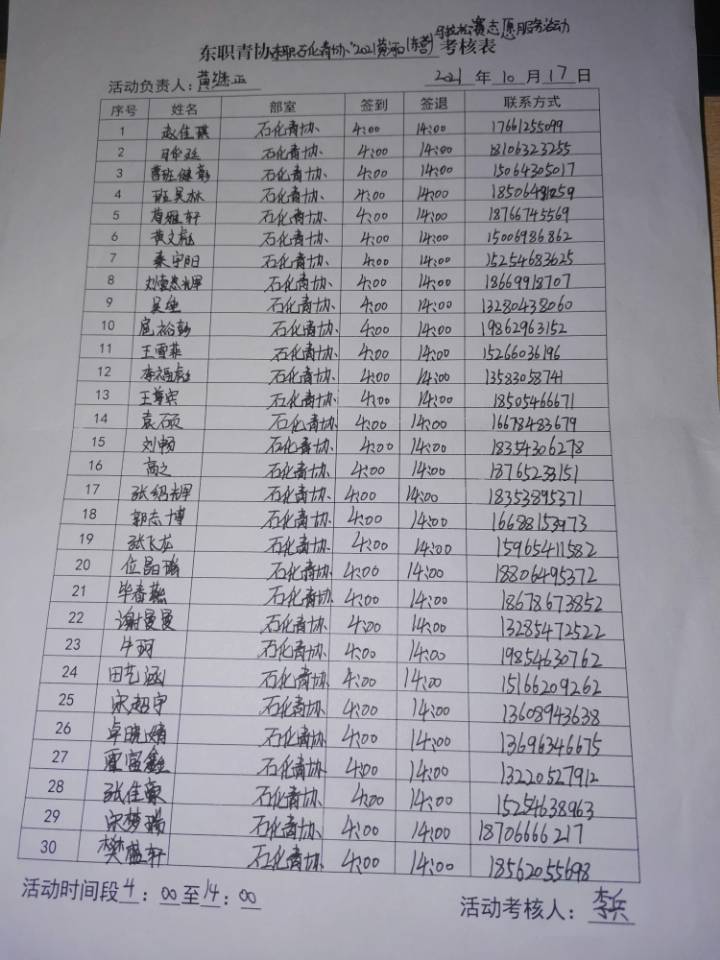 东职青协东职石化青协"2021黄河口(东营)马拉松赛志愿服务活动考核表
活动负责人：黄继正 2021年10月17日
序号 姓名 部室 签到 签退 联系方式
1 赵佳琪 石化青协 4:00 14:00 17661255099
2 石化青协 4:00 14:00 18106323255
3 曹班健彰 石化青协 4:00 14:00 15064305017
4 班昊林 石化青协 4:00 14:00 18506481259
5 葛雅轩 石化青协 4:00 14:00 18766745569
6 黄文彪 石化青协 4:00 14:00 15006986862
7 秦宇阳 石化青协 4:00 14:00 15254683625
8 石化青协 4:00 14:00 18669918707
9 吴绝 石化青协 4:00 14:00 13280438060
10 扈裕勃 石化青协 4:00 14:00 19862963152
11 王雪菲 石化青协 4:00 14:00 15266036196
12 李福彪 石化青协 4:00 14:00 13583058741
13 王尊宾 石化青协 4:00 14:00 18505466671
14 袁石硕 石化青协 4:00 14:00 16678483679
15 刘畅 石化青协 4:00 14:00 18354306278
16 高之 石化青协 4:00 14:00 18765233151
17 张绍辉 石化青协 4:00 14:00 18353895371
18 郭志博 石化青协 4:00 14:00 16688153973
19 张飞龙 石化青协 4:00 14:00 15965411582
20 位晶瑞 石化青协 4:00 14:00 18806495372
21 毕春燕 石化青协 4:00 14:00 18678673852
22 谢曼曼 石化青协 4:00 14:00 13285472522
23 牛珂 石化青协 4:00 14:00 19854630762
24 田艺涵 石化青协 4:00 14:00 15166209262
25 宋超宇 石化青协 4:00 14:00 13608943638
26 卓晓婧 石化青协 4:00 14:00 13696346675
27 石化青协 4:00 14:00 13220527912
28 张佳 石化青协 4:00 14:00 15254638963
29 宋梦瑞 石化青协 4:00 14:00 18706666217
30 樊蕴轩 石化青协 4:00 14:00 18562055698
活动时间段4：00至14：00
活动考核人：李兵